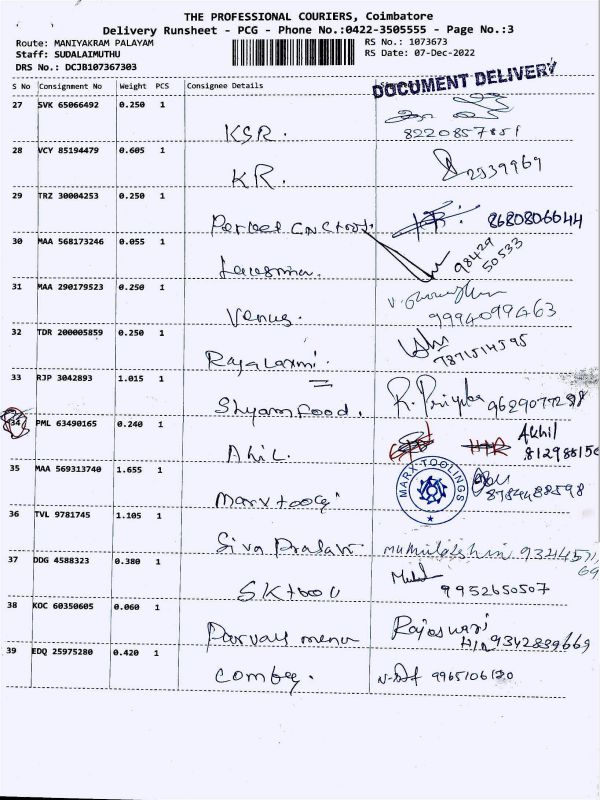 THE PROFESSIONAL COURIERS, Coimbatore
Delivery Runsheet - PCG - Phone No.:0422-3505555 - Page No.:3
Route: MANIYAKRAM PALAYAM RS No.: 1073673
Staff: SUDALAIMUTHU RS Date: 07-Dec-2022
DRS No.: DCJB107367303
DOCUMENT DELIVERY
S No Consignment No Weight PCS Consignee Details
27 SVK 65066492 0.250 1
KSR. 8220857851
28 VCY 85194479 0.605 1
KR. 2539969
29 TRZ 30004253 0.250 1
8680806644
30 MAA 568173246 0.055 1
98429
50533
31 MAA 290179523 0.250 1
Venus. 9994099463
32 TDR 200005859 0.250 1
Rajalaxmi. 7871514595
33 RJP 3042893 1.015 1
Shyam food. R. Priyka 9629077298
34 PML 63490165 0.240 1
Akhil
Ahil
35 MAA 569313740 1.655 1
MARX-TOOLINGS
Marx toog 8784488598
36 TVL 9781745 1.105 1
Siva Prasath
37 DDG 4588323 0.380 1
9952650507
38 KOC 60350605 0.060 1
Parvay menu Rajeswari
9342839669
39 EDQ 25975280 0.420 1
9965106120